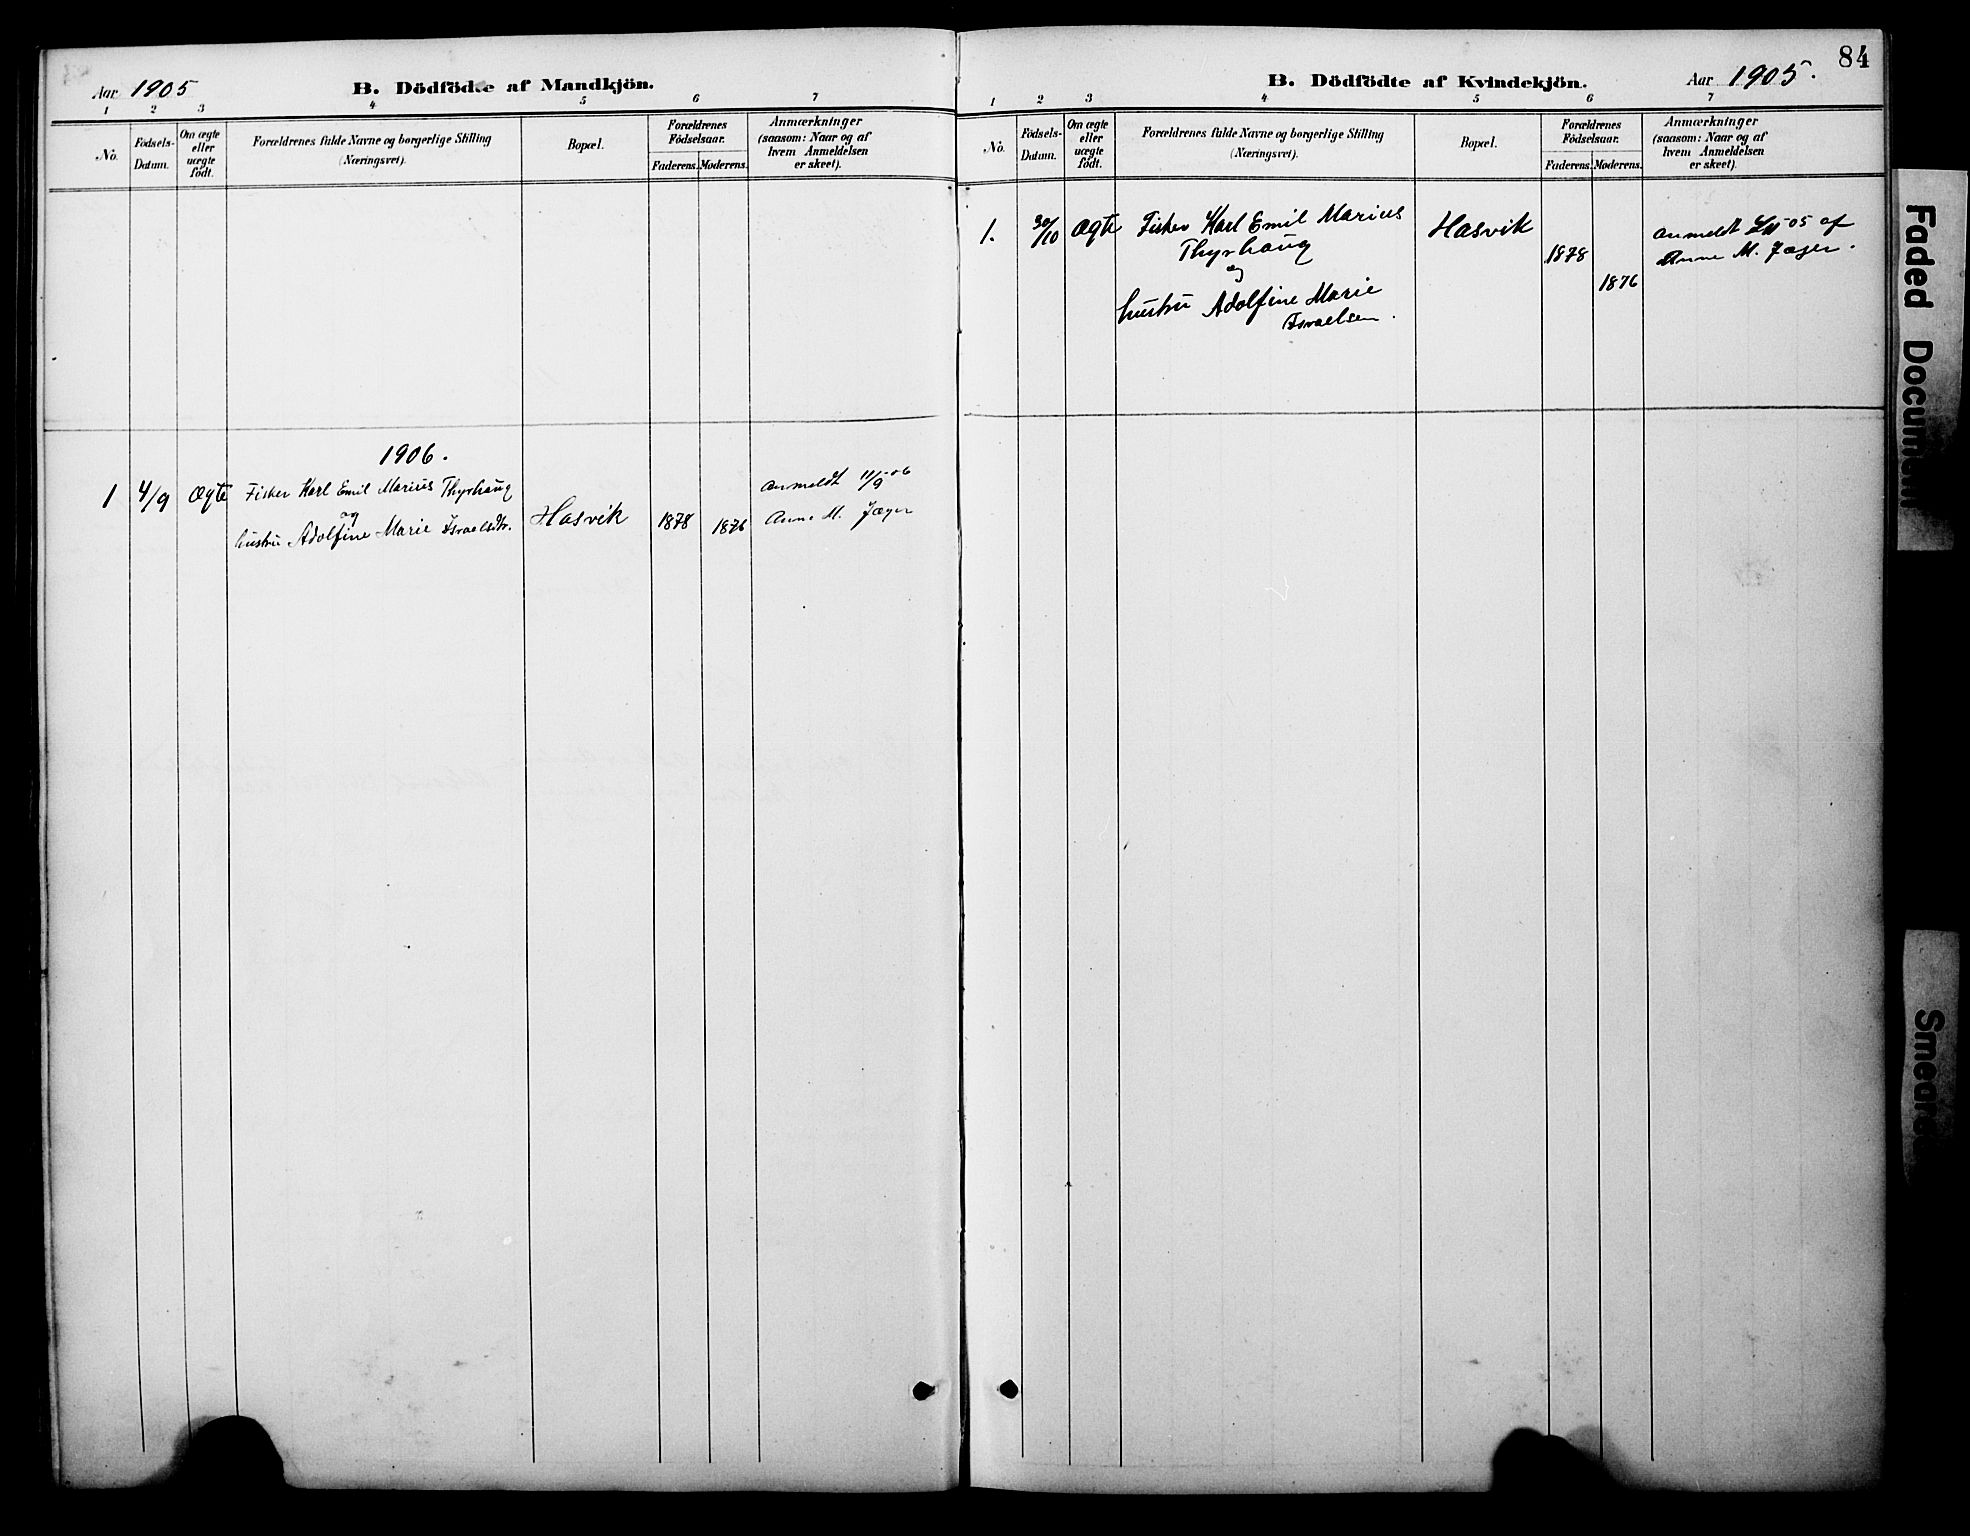 Aar 1905
B. Dödfödte af Mandkjön.
1 2 3 4 5 6 7
No.
Födsels-
Datum.
Om ægte
eller
uægte
födt.
Forældrenes fulde Navne og borgerlige Stilling
(Næringsvei).
Bopæl.
Forældrenes
Födselsaar.
Faderens. Moderens.
Anmærkninger
(saasom: Naar og af
hvem Anmeldelsen
er skeet).
1906.
1 4/9 Ægte Fisker Karl Emil Marius Thyrhaug
og
hustru Adolfine Marie Israelsdtr.
Hasvik
1878
1876
anmeldt 11/9-06
Anne M. Jæger
84
B. Dödfödte af Kvindekjön.
Aar 1905.
1 2 3 4 5 6 7
No.
Födsels-
Datum.
Om ægte
eller
uægte
födt.
Forældrenes fulde Navne og borgerlige Stilling
(Næringsvei).
Bopæl.
Forældrenes
Födselsaar.
Faderens. Moderens.
Anmærkninger
(saasom: Naar og af
hvem Anmeldelsen
er skeet).
1. 30/10 Ægte Fisker Karl Emil Marius
Thyrhaug
og
hustru Adolfine Marie
Israelsen.
Hasvik
1878
1876
anmeldt -05 af
Anne M. Jæger.
Faded Document
Smeared